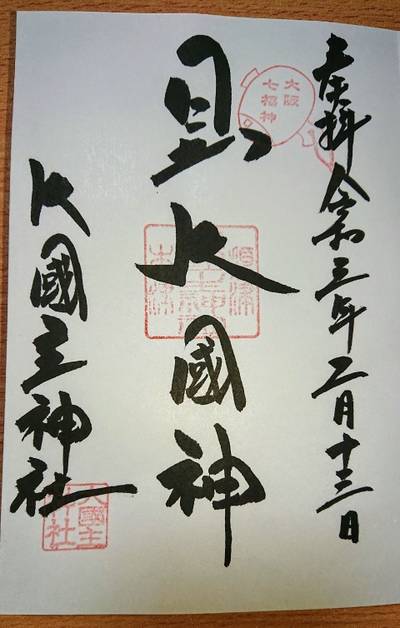 奉拝 令和三年二月十三日
大阪
七福神
日出大國神
大國主神社
大國主
神社